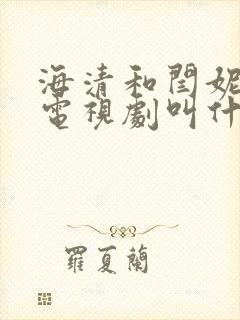 海清和閆妮
電視劇叫什
羅夏蘭